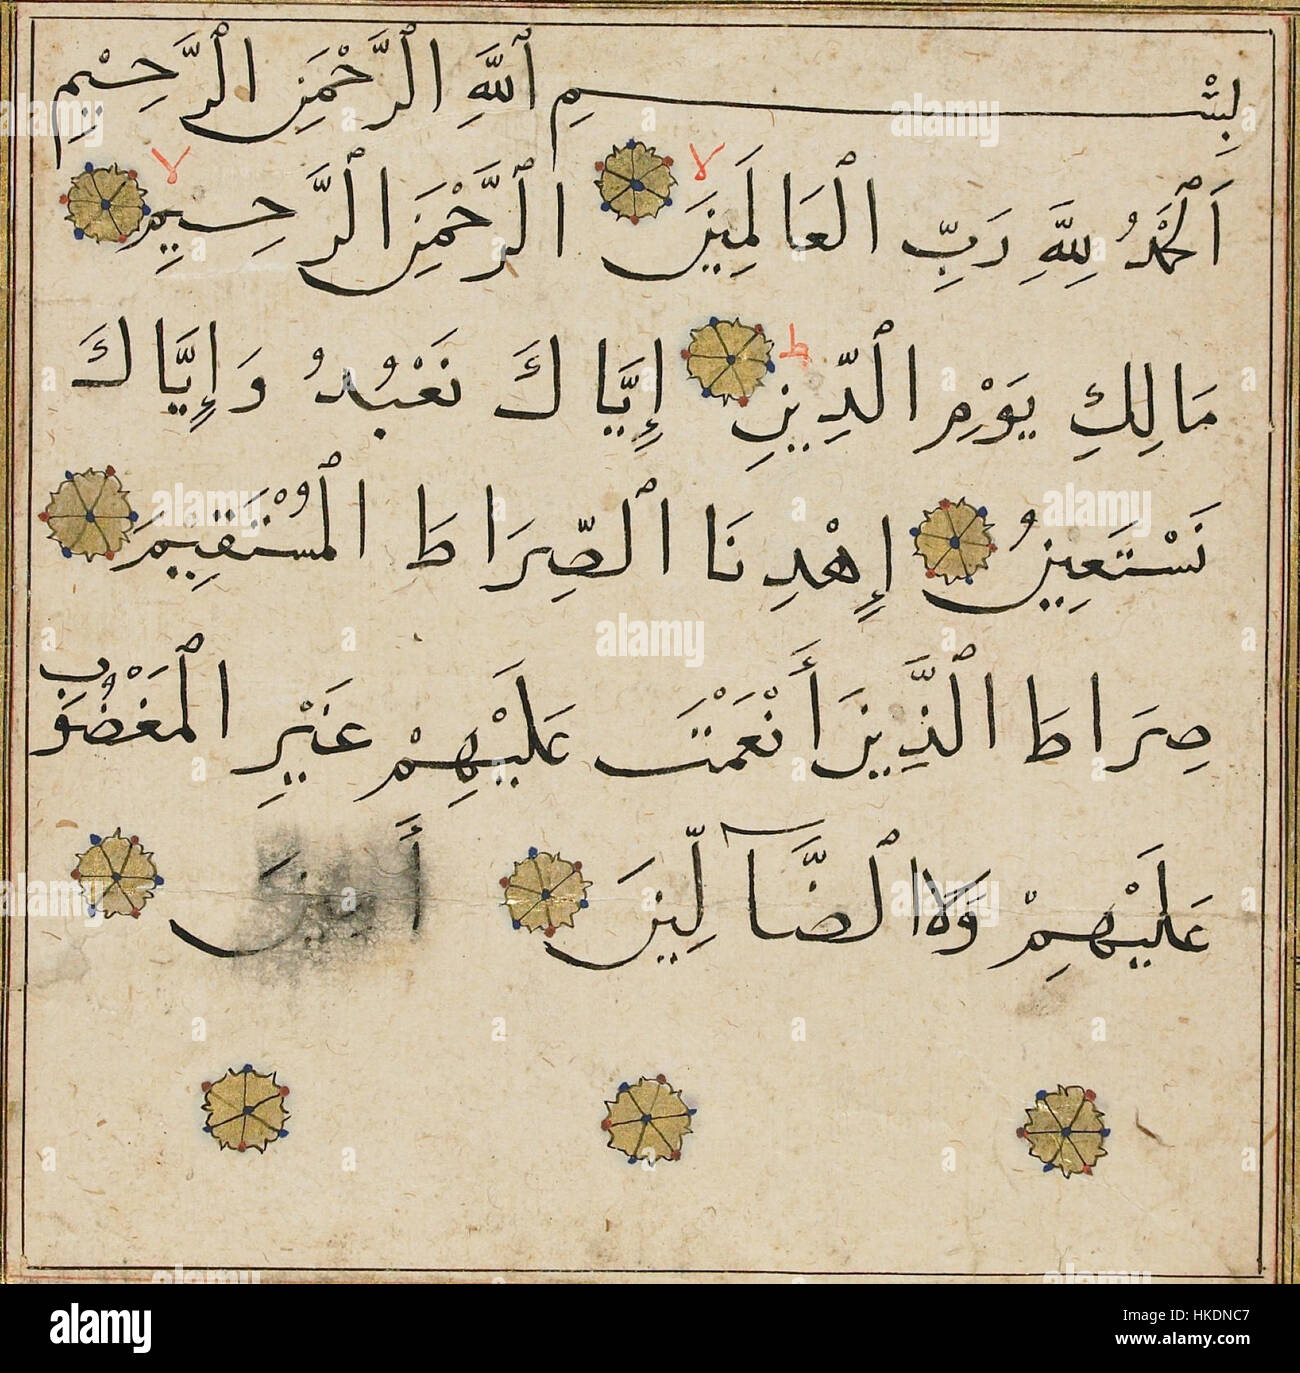 بِسْمِ ٱللَّهِ ٱلرَّحْمَنِ ٱلرَّحِيْمِ
اَلْحَمْدُ لِلَّهِ رَبِّ ٱلْعَالَمِينَ لا ٱلرَّحْمَنِ ٱلرَّحِيمِ لا
مَالِكِ يَوْمِ ٱلدِّينِ ط إِيَّاكَ نَعْبُدُ وَإِيَّاكَ
نَسْتَعِينُ إِهْدِنَا ٱلصِّرَاطَ ٱلْمُسْتَقِيمَ
صِرَاطَ ٱلَّذِينَ أَنْعَمْتَ عَلَيْهِمْ غَيْرِ ٱلْمَغْضُوبِ
عَلَيْهِمْ وَلَا ٱلضَّآلِّينَ أَمِينَ
alamy
Image ID: HKDNC7
www.alamy.com